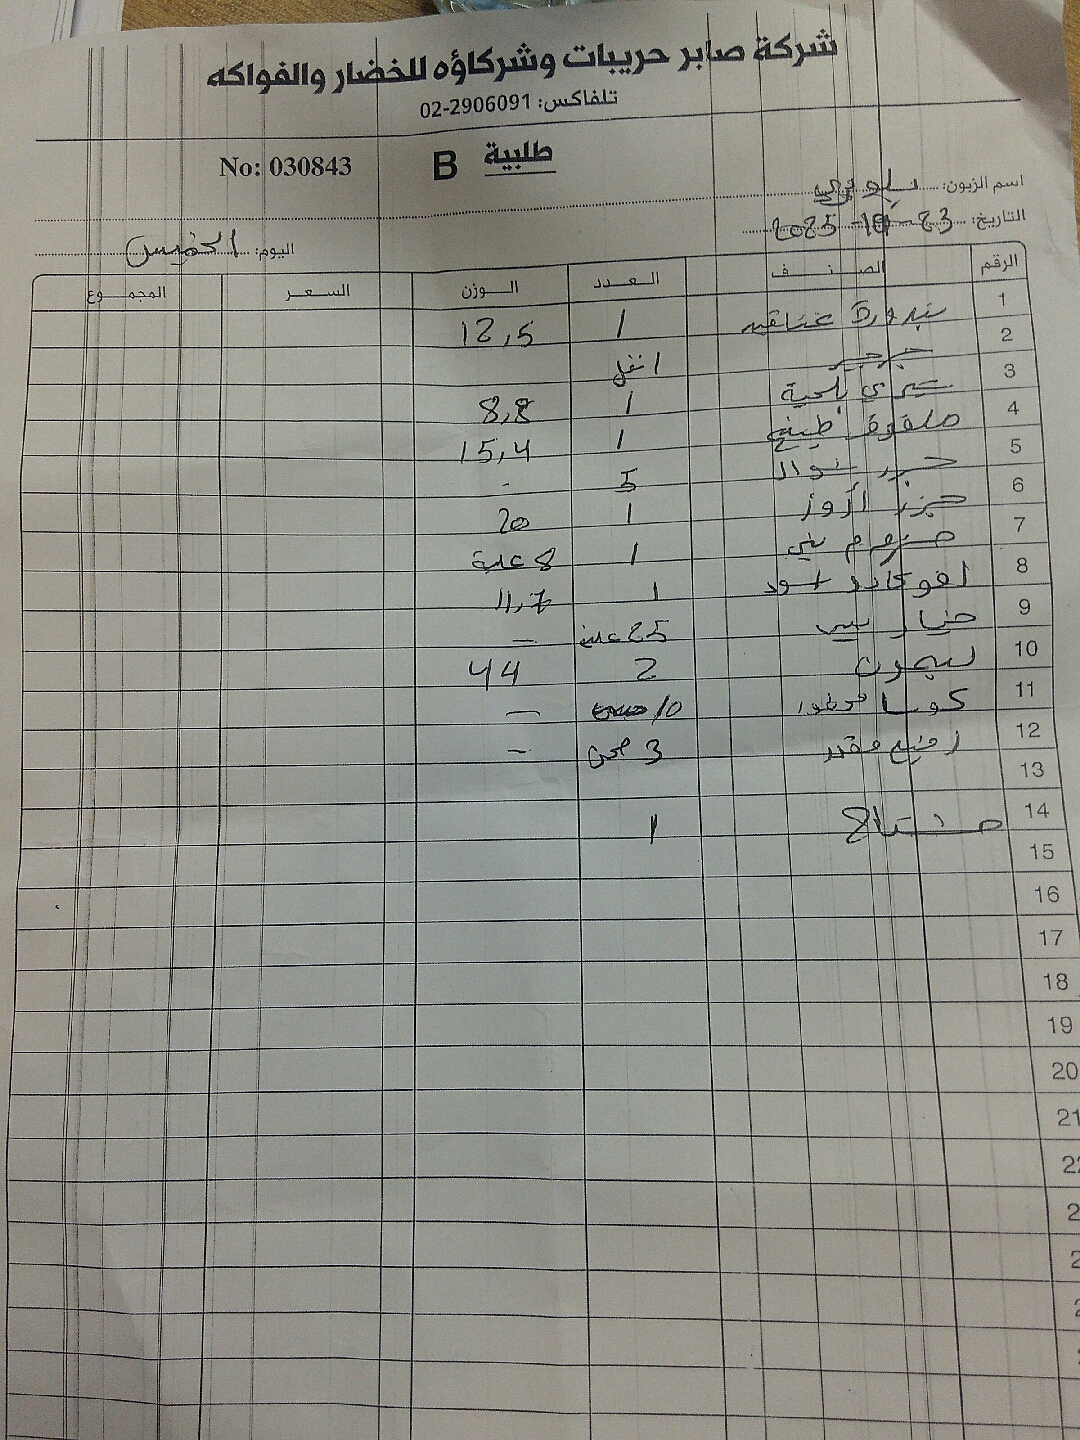 شركة صابر حريبات وشركاؤه للخضار والفواكه
تلفاكس: 02-2906091
No: 030843 B طلبية
اسم الزبون:
التاريخ: 23-10-2025
اليوم: الخميس
الرقم الصنف العدد الوزن السعر المجموع
1 بندورة عناقيد 1 12,5
2 جرجير 1
3 شيري بلحية 1 8,8
4 ملفوف طبيخ 1 15,4
5 5 -
6 جزر 1 20
7 1 8 علبة
8 افوكادو اسود 1 11,7
9 خيار بيبي 25 علبة -
10 ليمون 2 44
11 كوسا 10 -
12 3 صحن -
13
14 1
15
16
17
18
19
20
21